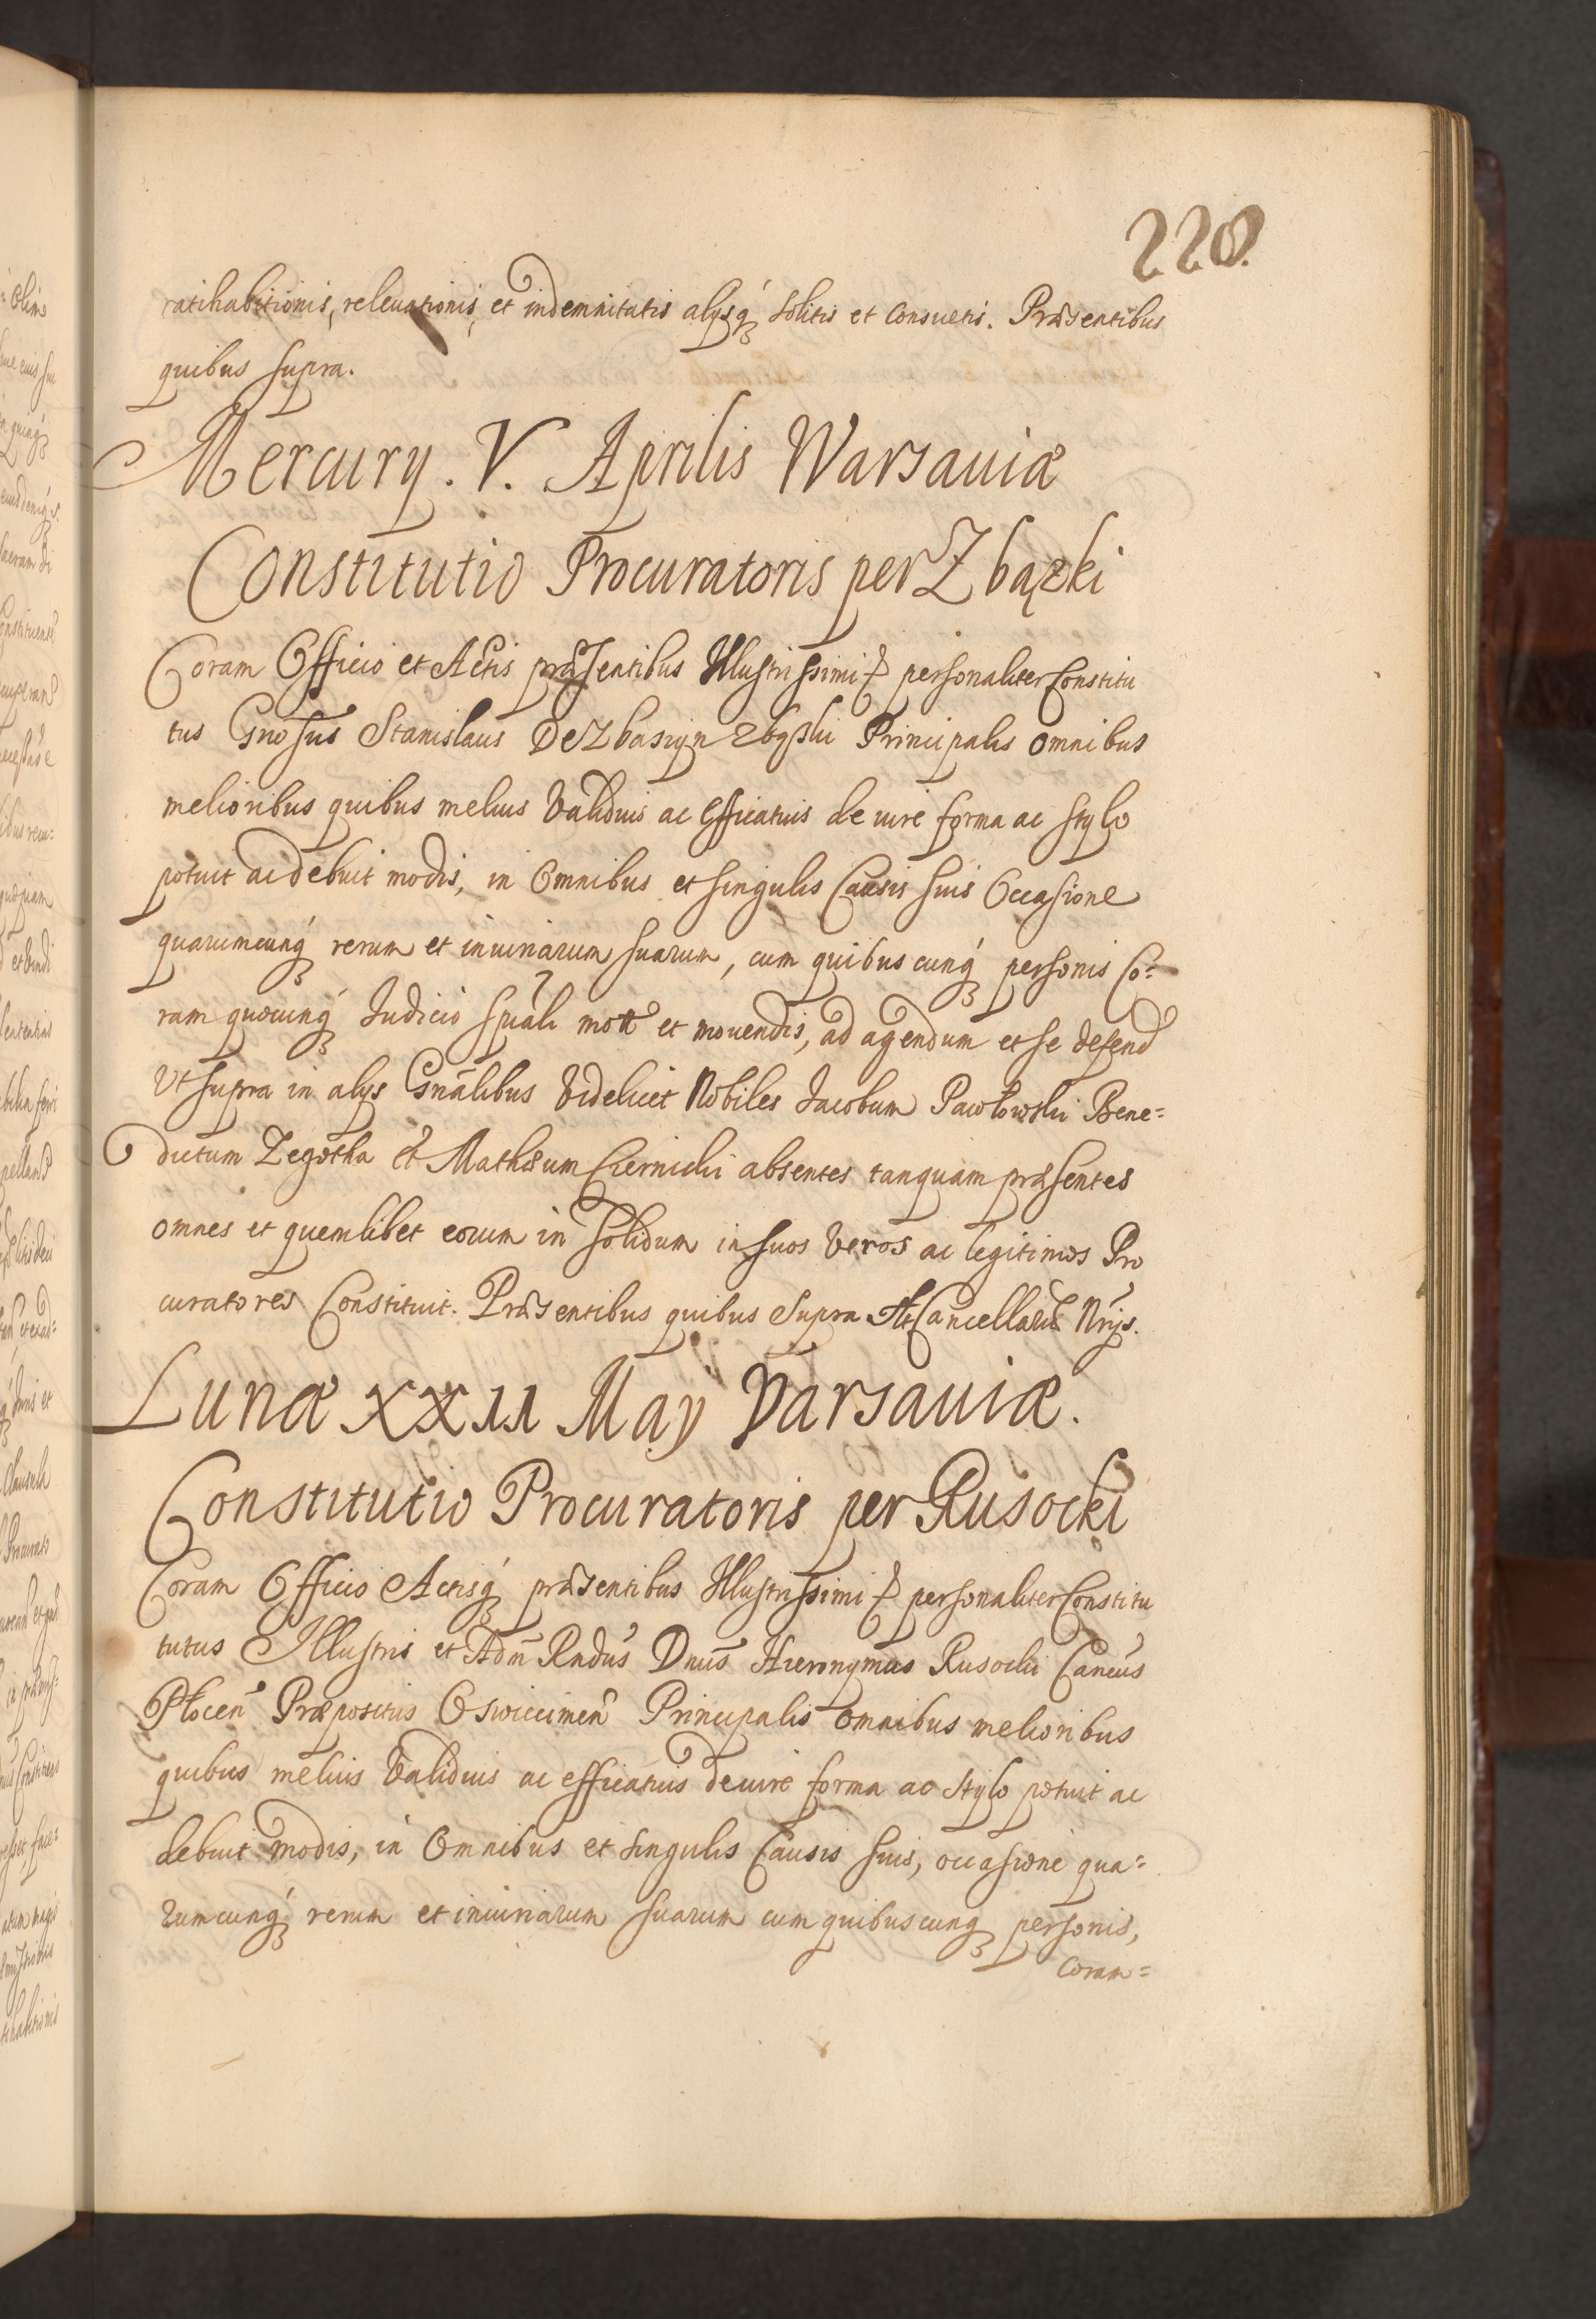 228.
ratihabitionis, releuationis, et indemnitatis alysq́ż solitis et Consuetis. Præsentibus
quibus supra.
Mercury. V. Aprilis Warsauiæ
Constitutio Procuratoris per Zbązki
Coram Officio et Actis præsentibus Illustrissimi personaliter Constitu
tus Gnosus Stanislaus De Zbaszyn Principalis omnibus
melioribus quibus melius Validius ac Efficatius de iure forma ac stylo
potuit ac debuit modis, in Omnibus et singulis Causis suis Occasione
quarumcunq́ rerum et iniuriarum suarum, cum quibuscunq́ personis Co:
ram quocunq́ Iudicio spuali mott et mouendis, ad agendum et se defend
Vt supra in alys Gnalibus Videlicet Nobiles Iacobum Pawłowski Bene=
dictum Zegotha et Mathæum Czernicki absentes tanquam præsentes
omnes et quemlibet eorum in solidum in suos Veros ac legitimos Pro
curatores Constituit. Præsentibus quibus Supra Et Cancellariæ Nrijs.
Lunæ XXII May Varsauiæ.
Constitutio Procuratoris per Rusocki
Coram Officio Actisq́ præsentibus Illustrissimi personaliter Constitu
tutus Illustris et Adm Rndus Dnus Hieronymus Rusocki Cancus
Płocen Præpositus Oswiecimen Principalis omnibus melioribus
quibus melius Validius ac efficatius de iure forma ac stylo potuit ac
debuit modis, in Omnibus et singulis Causis suis, occasione qua=
rumcunq́ rerum et iniuriarum suarum cum quibuscunq personis,
Coram=